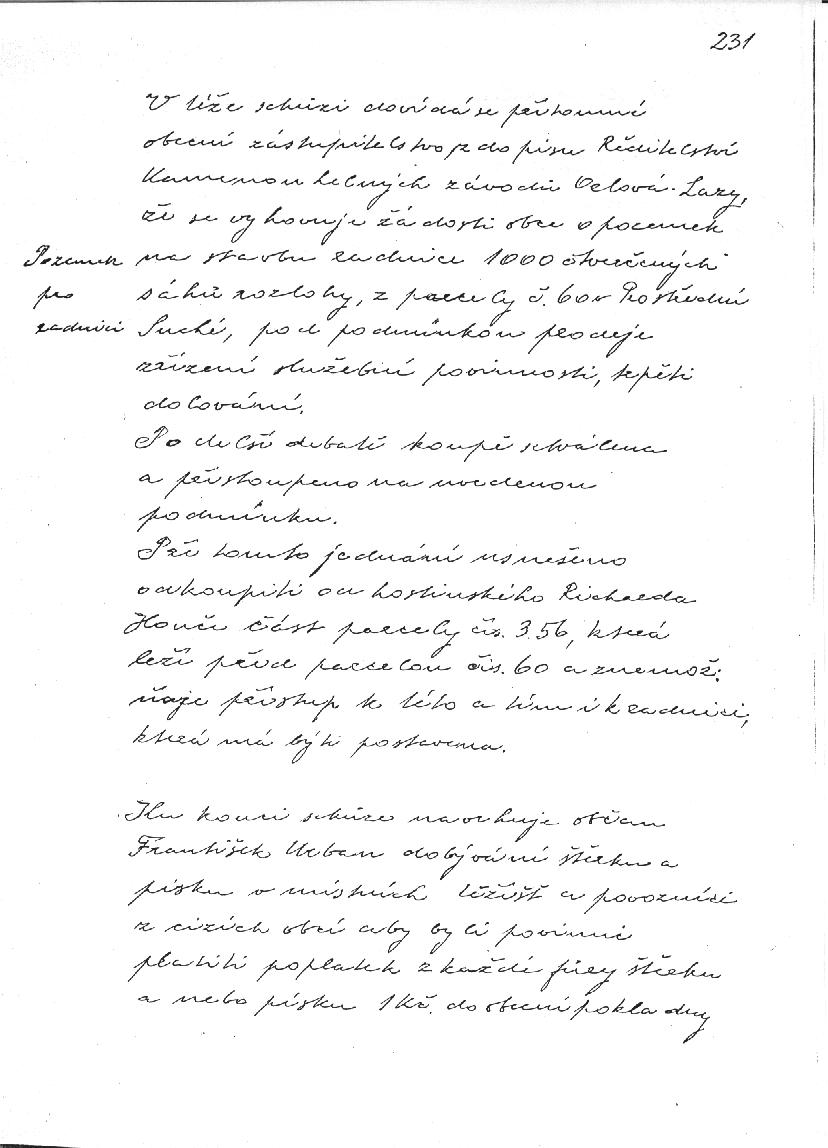 231
V téže schůzi dovídá se přítomné
obecní zástupitelstvo z dopisu Ředitelství
Kamenouhelných závodů Orlová-Lazy,
že se vyhovuje žádosti obce o pozemek
Pozemek
pro
radnici
na stavbu radnice 1000 čtverečných
sáhů rozlohy, z parcely č. 60 v Prostřední
Suché, pod podmínkou prodeje
zřízení služební povinnosti, trpěti
dolování.
Po delší debatě koupě schválena
a přistoupeno na uvedenou
podmínku.
Při tomto jednání usnešeno
odkoupiti od hostinského Richarda
část parcely čís. 356, která
leží před parcelou čís. 60 a znemož:
ňuje přístup k této a tím i k radnici,
která má býti postavena.
Ku konci schůze navrhuje občan
František Urban dobývání štěrku a
písku v místních těžišť a povozníci
z cizích obcí aby byli povinni
platiti poplatek z každé fůry štěrku
a nebo písku 1 Kč. do obecní pokladny